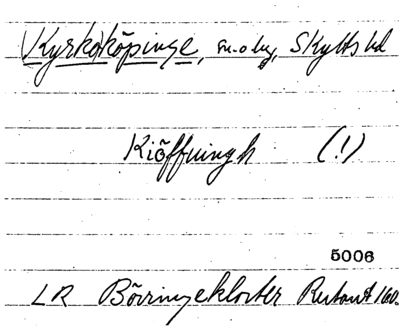 Kyrkoköpinge, sn o by, Skytts hd
Kiöffningh (!)
5006
LR Börringekloster 160.